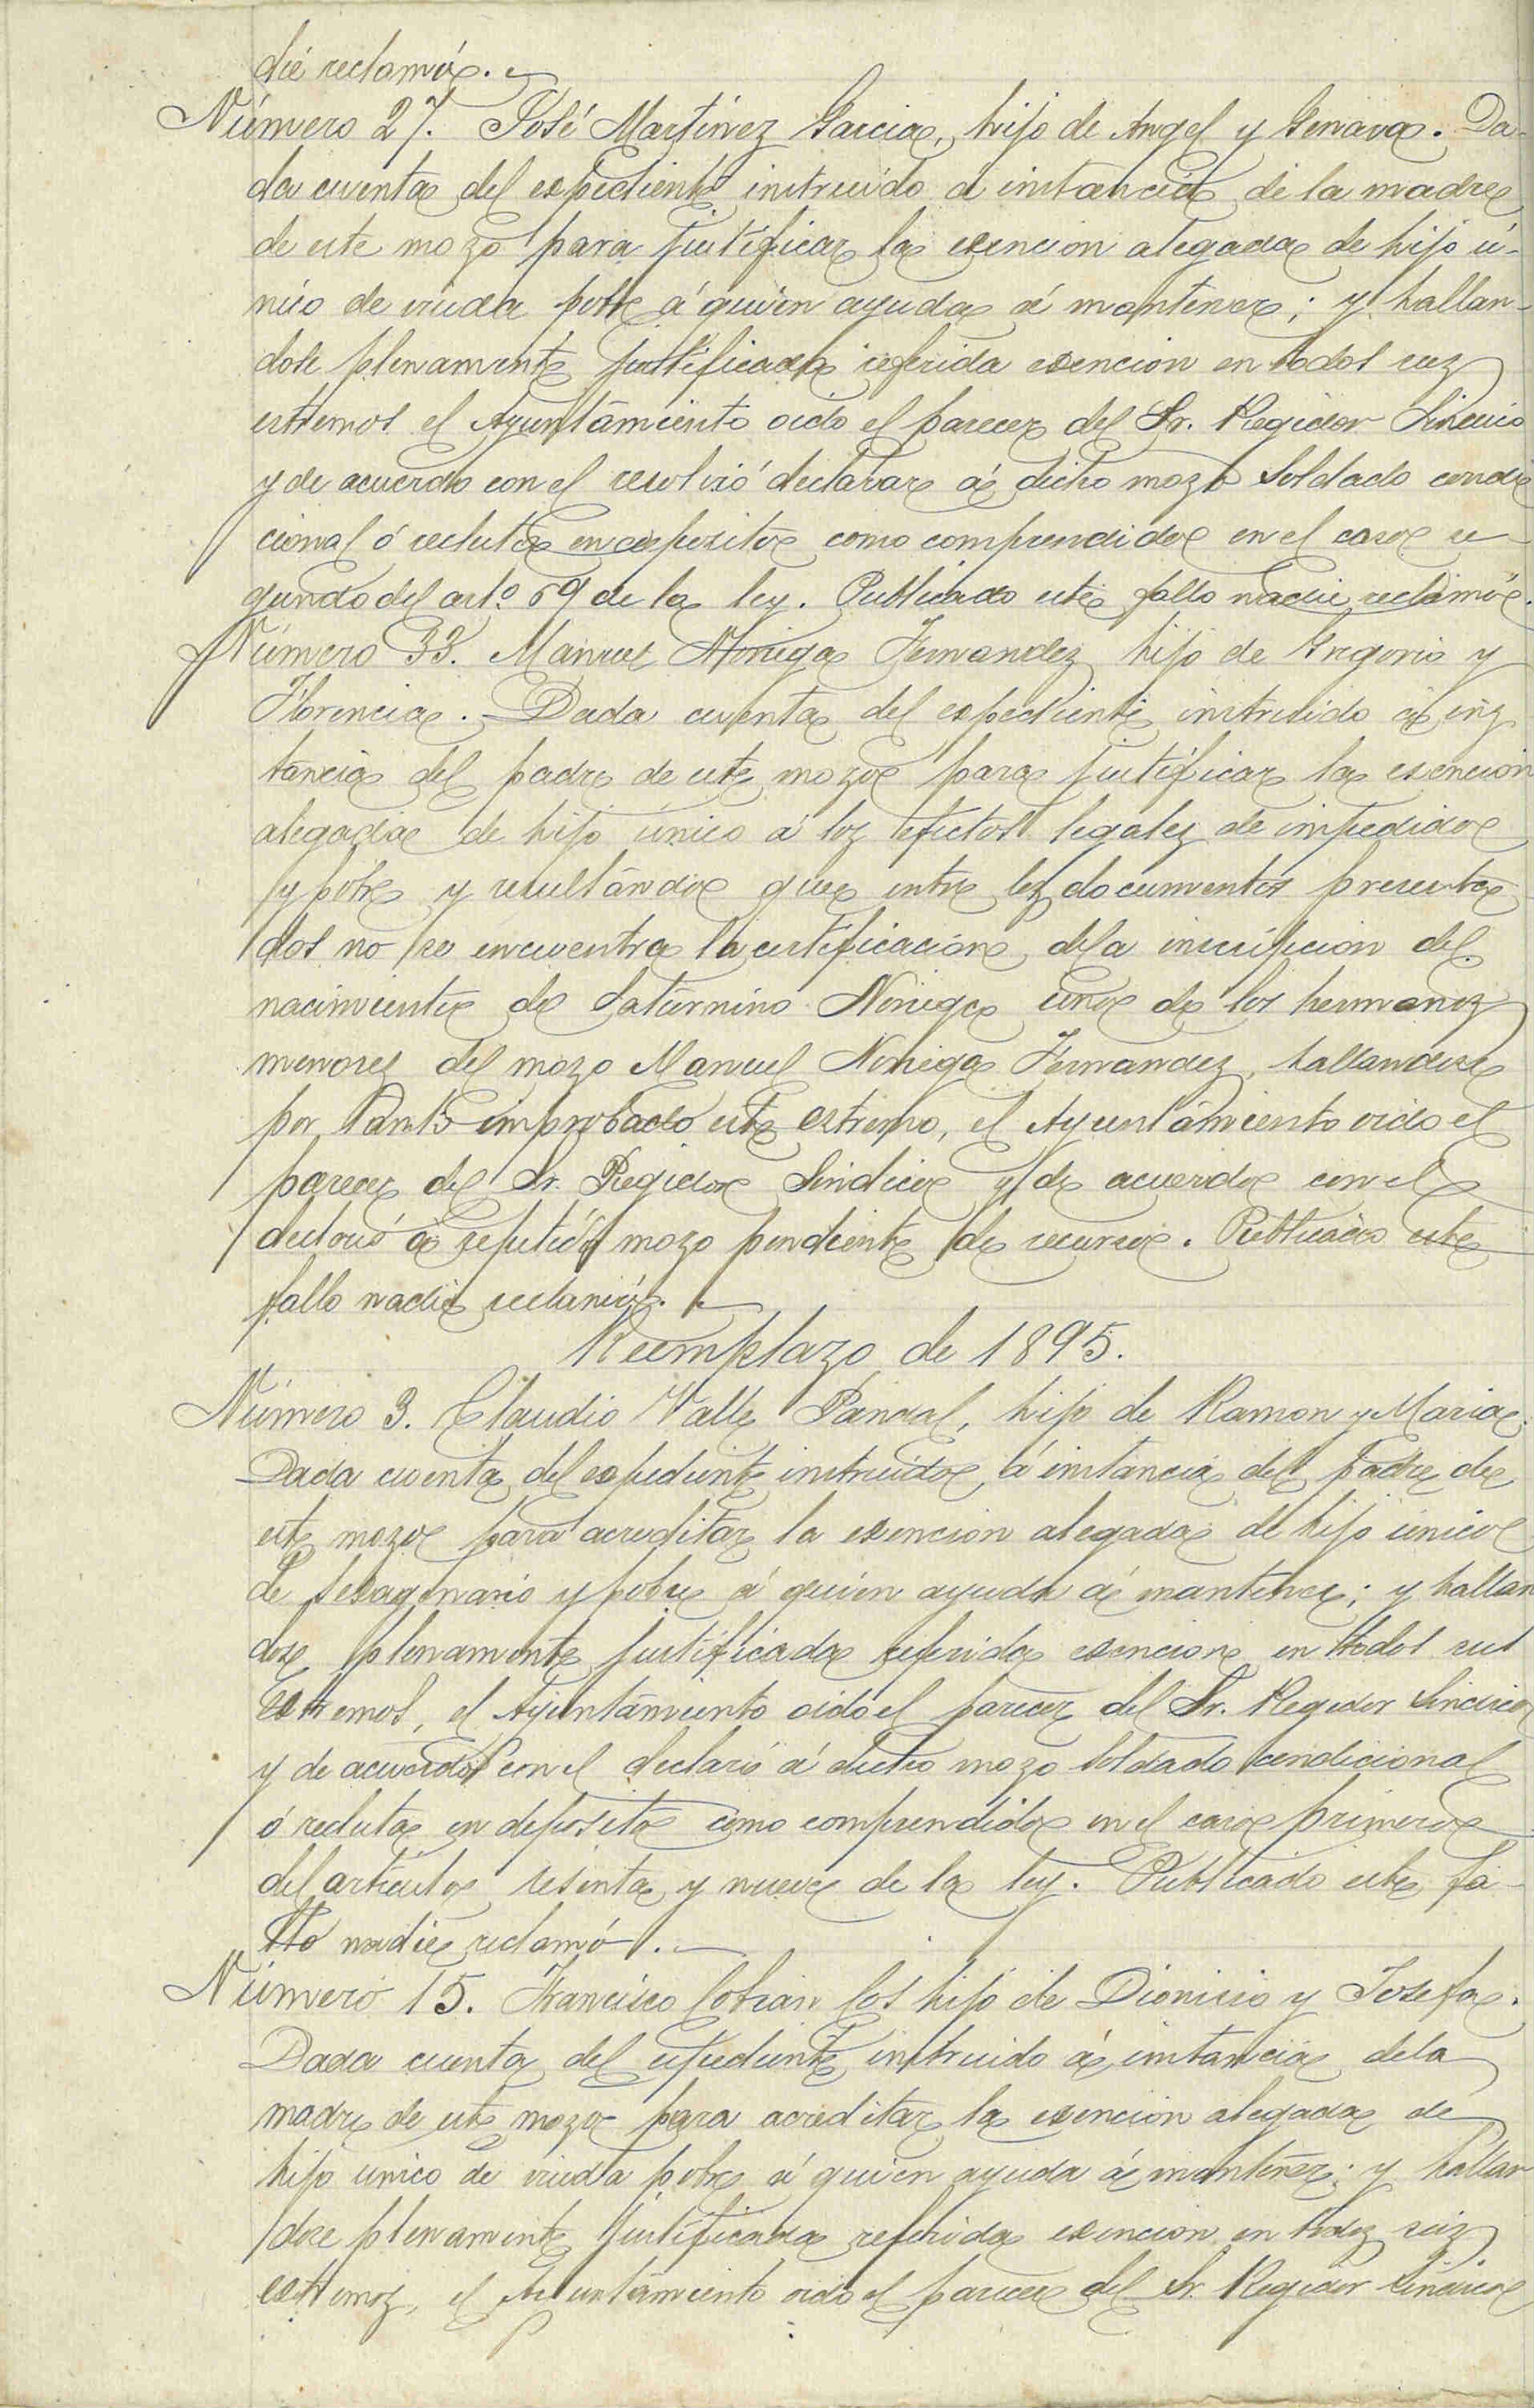 die reclamó.
Número 27. José Martínez Garcia, hijo de Angel y Genara. Da-
da cuenta del espediente instruido á instancia de la madre
de este mozo para justificar la esencion alegada de hijo ú-
nico de viuda pobre á quien ayuda á mantener; y hallan-
dose plenamente justificada referida esencion en todos sus
estremos el Ayuntamiento oido el parecer del Sr. Regidor Sindico
y de acuerdo con el resolvió declarar á dicho mozo soldado condi
cional ó recluta en deposito como comprendido en el caso se-
gundo del artº 69 de la ley. Publicado este fallo nadie reclamó.
Número 33. Manuel Noriega Fernandez hijo de Gregorio y
Florencia. Dada cuenta del espediente instruido á ins
tancia del padre de este mozo para justificar la esencion
alegada de hijo único á los efectos legales de impedido
y pobre y resultando que entre los documentos presenta
dos no se encuentra la certificacion dela inscripcion del
nacimiento de Saturnino Noriega uno de los hermanos
menores del mozo Manuel Noriega Fernandez, hallandose
por tanto improbado este estremo, el Ayuntamiento oido el
parecer del Sr. Regidor Sindico y de acuerdo con el
declaró á repetido mozo pendiente de recurso. Publicado este
fallo nadie reclamó.
Reemplazo de 1895.
Número 3. Claudio Valle Pandal, hijo de Ramon y Maria.
Dada cuenta del espediente instruido á instancia del padre de
este mozo para acreditar la esencion alegada de hijo único
de sesagenario y pobre á quien ayuda á mantener; y hallan
dose plenamente justificada referida esencion en todos sus
estremos, el Ayuntamiento oido el parecer del Sr. Regidor Sindico
y de acuerdo con el declaró á dicho mozo soldado condicional
ó recluta en deposito como comprendido en el caso primero
del articulo sesenta y nueve de la ley. Publicado este fa-
llo nadie reclamó.
Número 15. Francisco Cobian Cos hijo de Dionisio y Josefa.
Dada cuenta del espediente instruido á instancia dela
madre de este mozo para acreditar la esencion alegada de
hijo unico de viuda pobre á quien ayuda á mantener; y hallan
dose plenamente justificada referida esencion en todos sus
estremos, el Ayuntamiento oido el parecer del Sr. Regidor Sindico